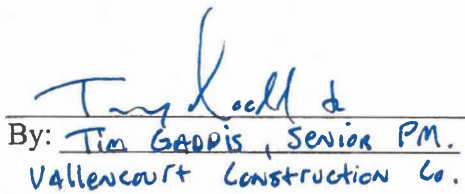 By: Tim GADDIS, SENIOR PM.
VALLENCOURT CONSTRUCTION Co.